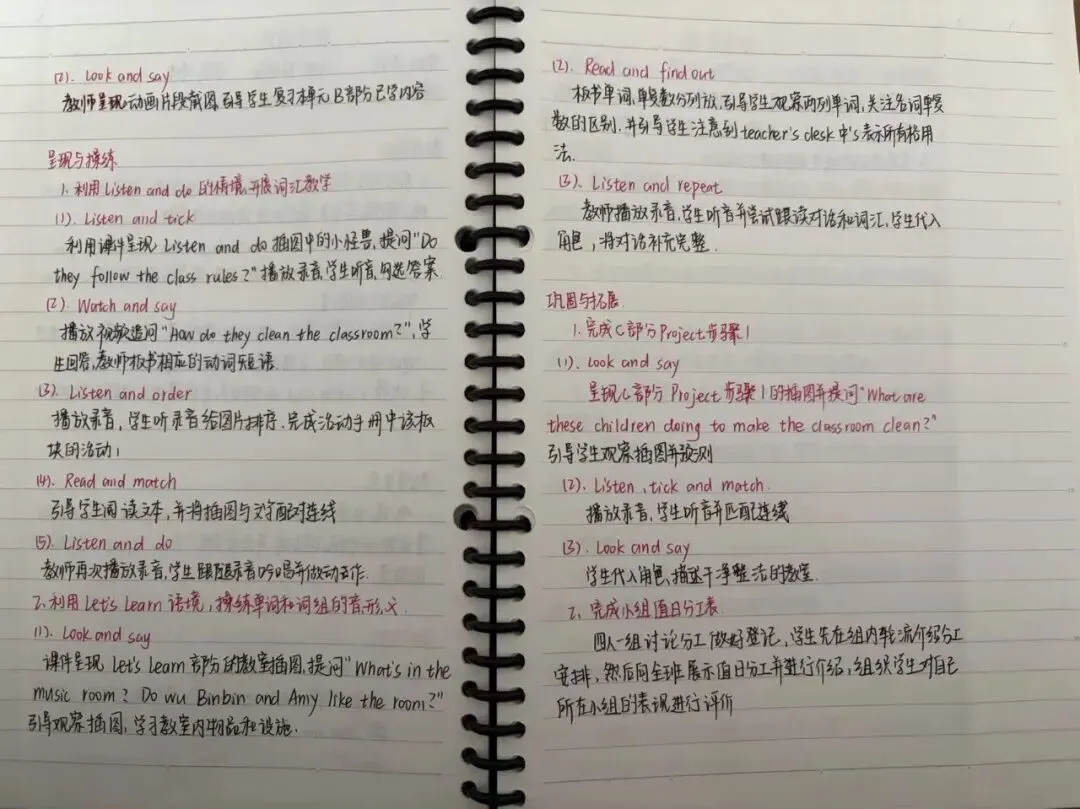 (2). Look and say
教师呈现动画片段截图,引导学生复习本单元B部分已学内容
呈现与操练
1. 利用Listen and do 的情境,开展词汇教学
(1). Listen and tick
利用课件呈现 Listen and do 插图中的小怪兽,提问"Do
they follow the class rules?"播放录音,学生听音,勾选答案.
(2). Watch and say
播放视频追问"How do they clean the classroom?",学
生回答,教师板书相应的动词短语.
(3). Listen and order
播放录音,学生听录音给图片排序.完成活动手册中该板
块的活动1
(4). Read and match
引导学生阅读文本,并将插图与文字配对连线
(5). Listen and do
教师再次播放录音,学生跟随录音吟唱并做动作.
2. 利用Let's learn 语境,操练单词和词组的音、形、义
(1). Look and say
课件呈现 Let's learn 部分的教室插图,提问"What's in the
music room? Do wu Binbin and Amy like the room?"
引导观察插图,学习教室内物品和设施.
(2). Read and find out
板书单词,单复数分列放,引导学生观察两列单词,关注名词单复
数的区别.并引导学生注意到teacher's desk 中's表示所有格用
法.
(3). Listen and repeat
教师播放录音,学生听音并尝试跟读对话和词汇,学生代入
角色,将对话补充完整.
巩固与拓展
1. 完成C部分Project步骤1
(1). Look and say
呈现C部分 Project步骤1的插图并提问"What are
these children doing to make the classroom clean?"
引导学生观察插图并预测
(2). Listen, tick and match.
播放录音,学生听音并匹配连线
(3). Look and say
学生代入角色,描述干净整洁的教室.
2. 完成小组值日分工表.
四人一组讨论分工做好登记,学生先在组内轮流介绍分工
安排,然后向全班展示值日分工并进行介绍,组织学生对自己
所在小组的表现进行评价